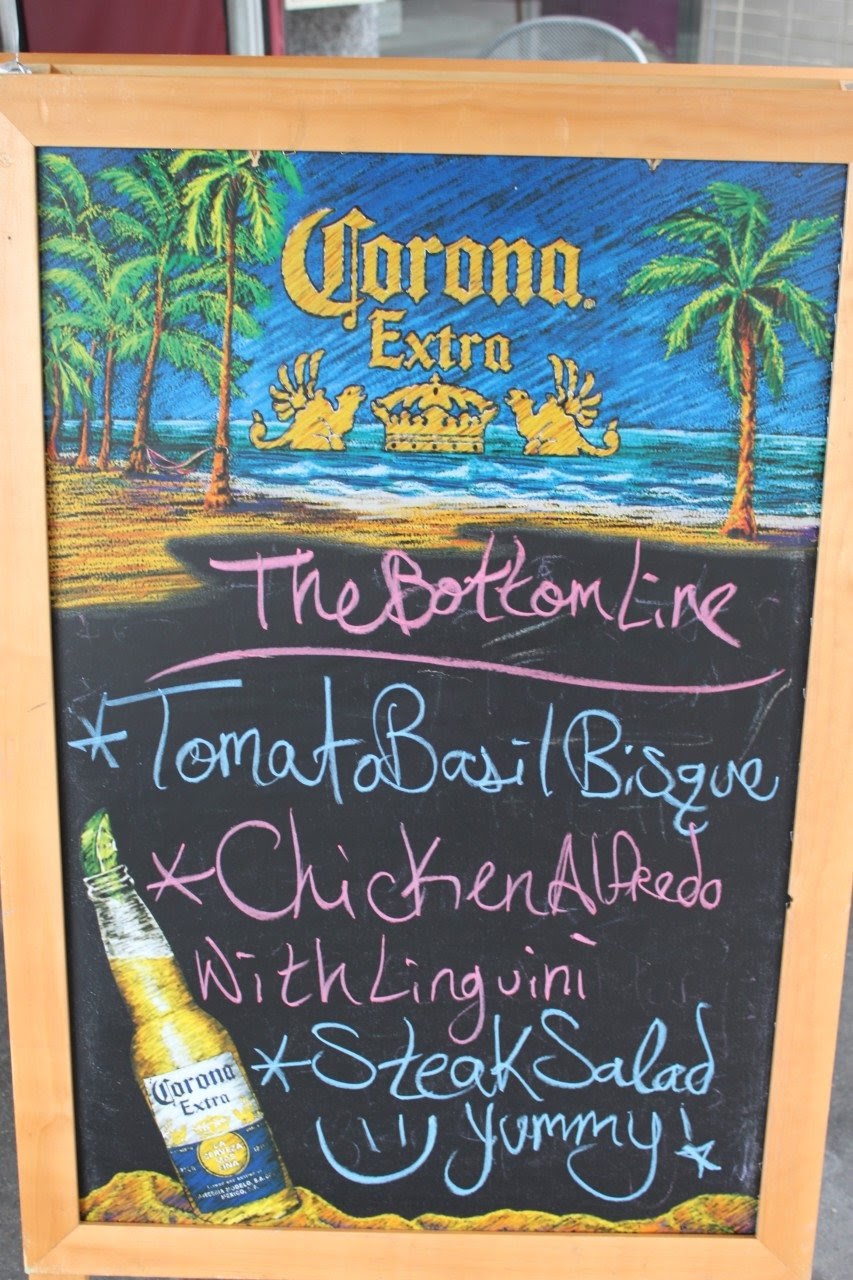 Corona
Extra
The Bottom Line
*Tomato Basil Bisque
*Chicken Alfredo
With Linguini
*Steak Salad
Yummy!
Corona
Extra
LA
CERVEZA
MAS
FINA
MEXICO